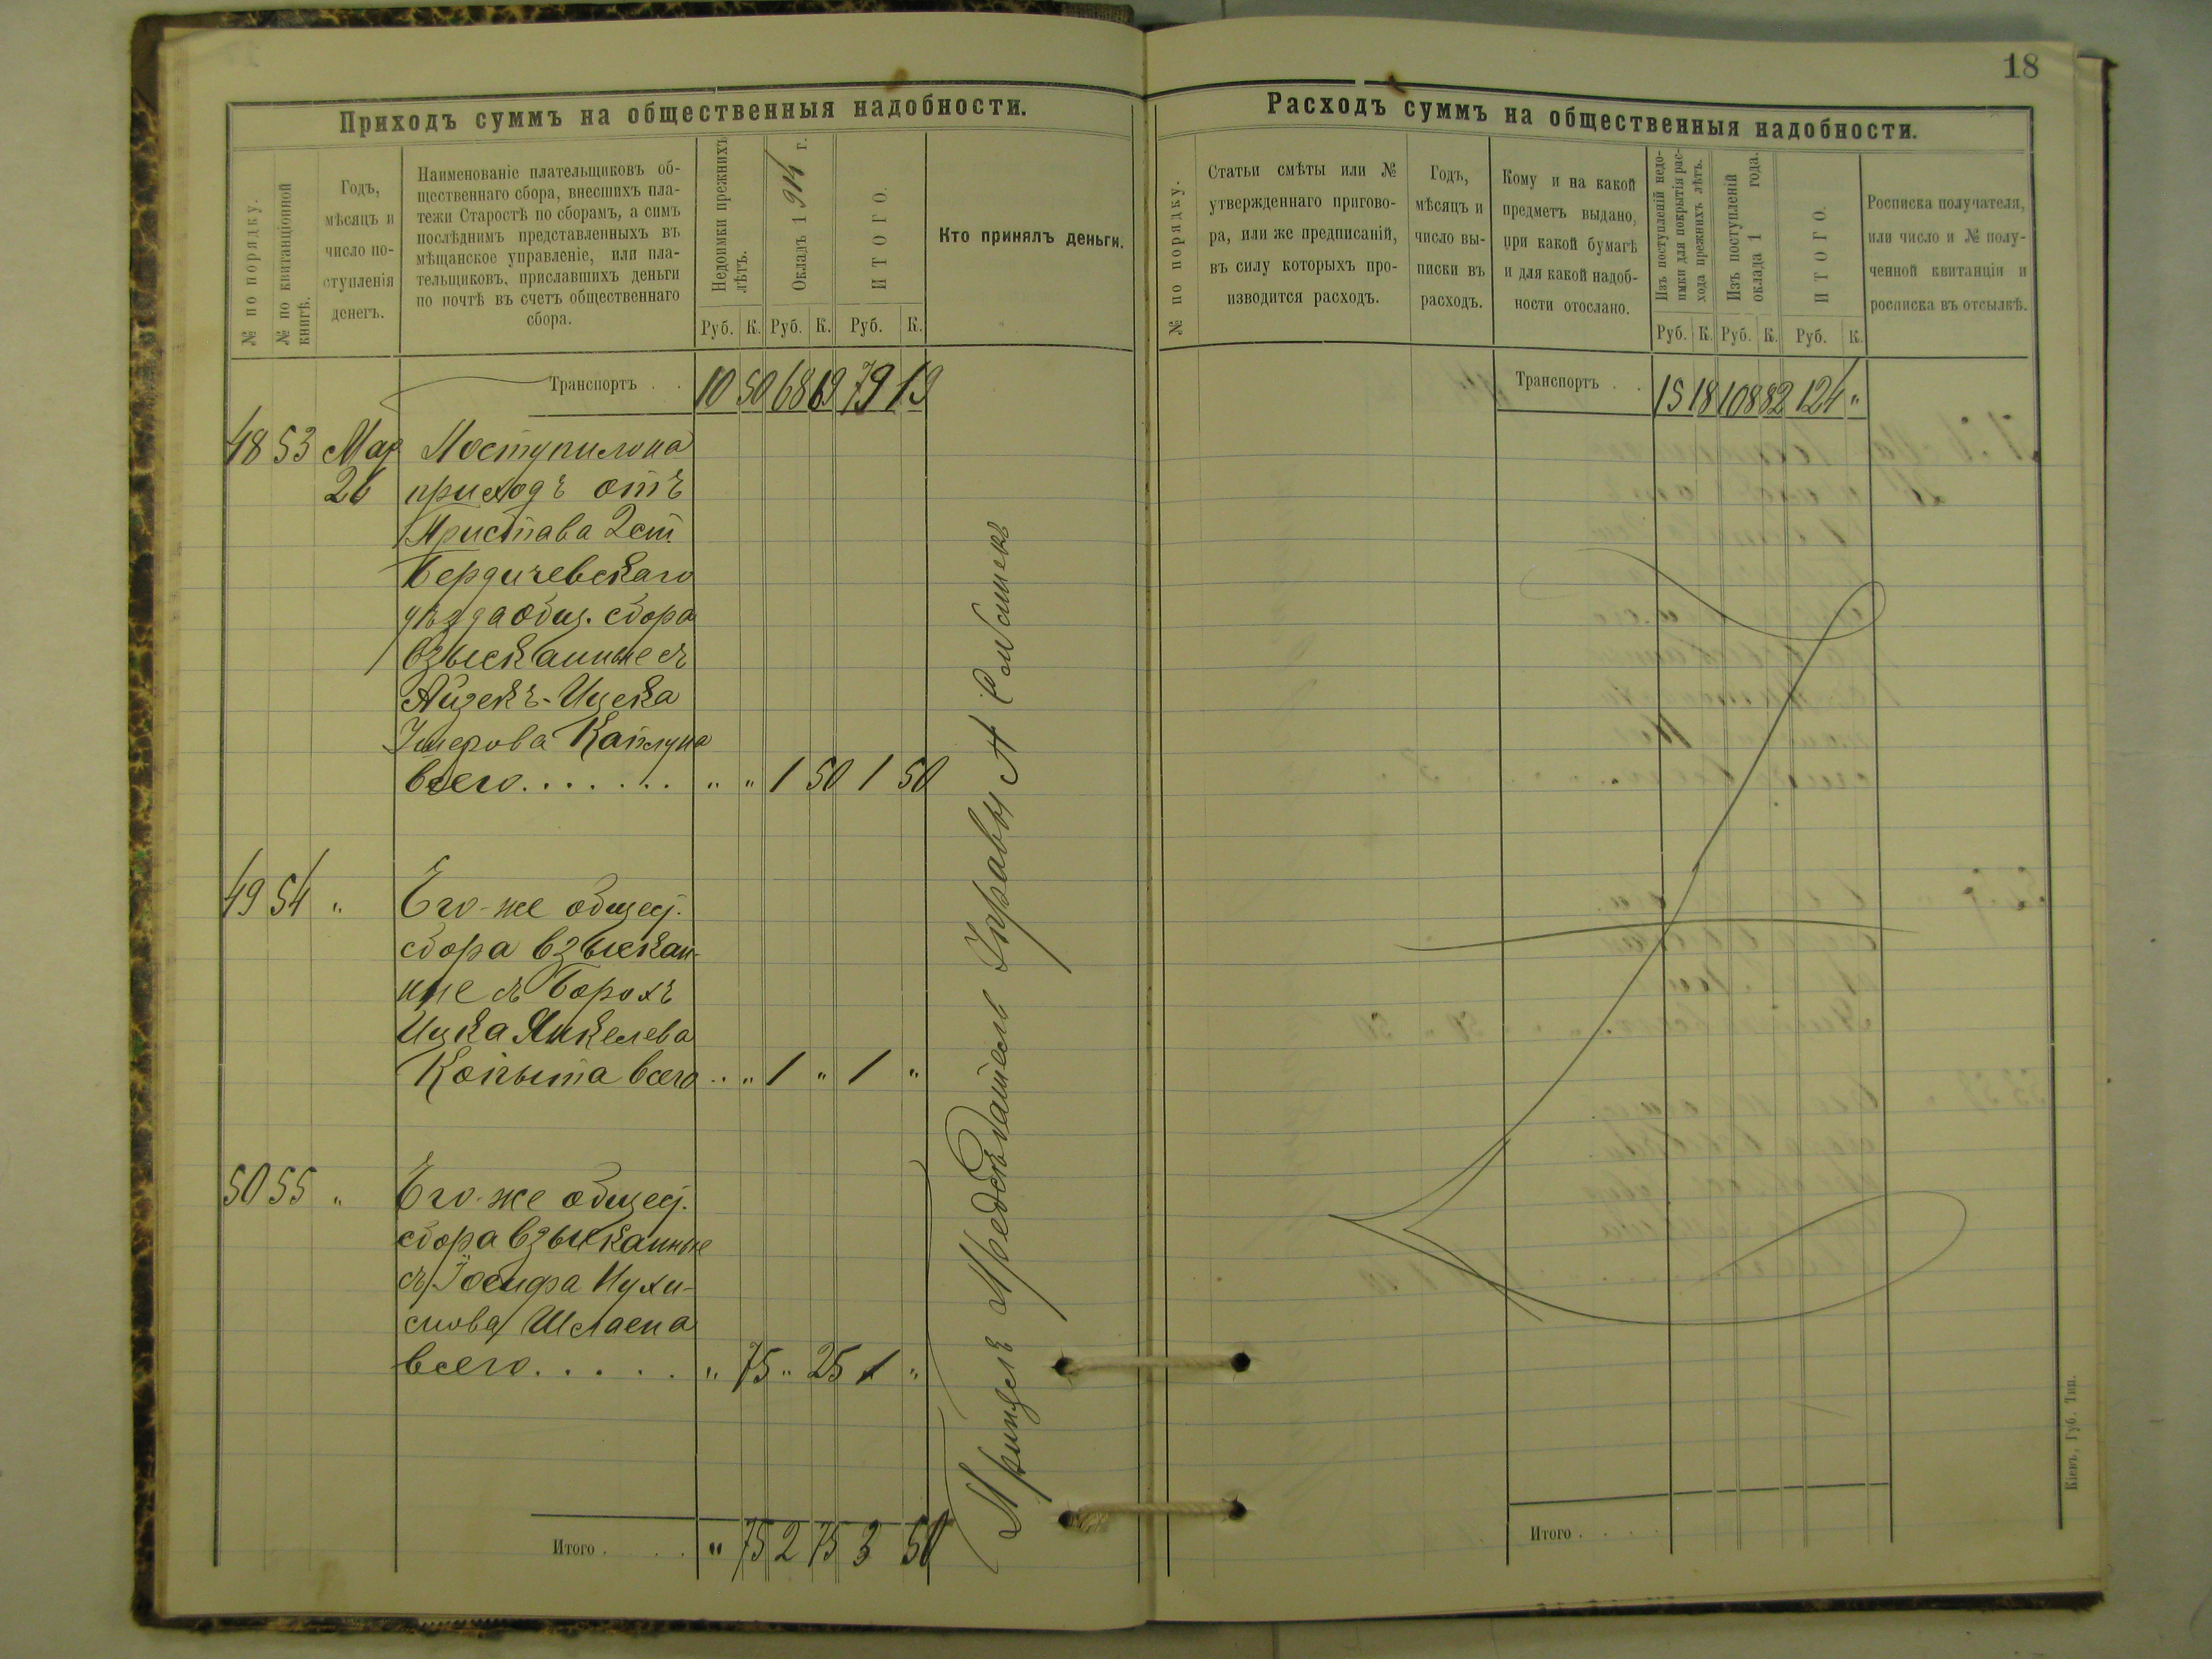 18
Приходъ суммъ на общественныя надобности.
№ по порядку.
№ по квитанціонной книгѣ.
Годъ,
мѣсяцъ и
число по-
ступленія
денегъ.
Наименованіе плательщиковъ об-
щественнаго сбора, внесшихъ пла-
тежи Старостѣ по сборамъ, а симъ
послѣднимъ представленныхъ въ
мѣщанское управленіе, или пла-
тельщиковъ, приславшихъ деньги
по почтѣ въ счетъ общественнаго
сбора.
Недоимки прежнихъ
лѣтъ.
Окладъ 1914 г.
ИТОГО.
Кто принялъ деньги.
Руб. К. Руб. К. Руб. К.
Транспортъ . . 10 50 68 69 79 19
48 53 Мар Поступило на
26 приходъ отъ
Пристава 2 ст.
Бердичевскаго
уѣзда общ. сбора
взысканные съ
Айзекъ-Ицека
Каплуна
всего . . . . . . " " 1 50 1 50
49 54 " Его-же общес.
сбора взыскан-
ные съ Борохъ
Ицка Янкелева
Копыта всего . . " 1 " 1 "
50 55 " Его-же общес.
сбора взысканные
съ Іосифа Нухи-
мова
всего . . . . . " 75 " 25 1 "
Предсѣдатель Управы А
Итого . . . " 75 2 75 3 50
Расходъ суммъ на общественныя надобности.
№ по порядку.
Статьи смѣты или №
утвержденнаго пригово-
ра, или же предписаній,
въ силу которыхъ про-
изводится расходъ.
Годъ,
мѣсяцъ и
число вы-
писки въ
расходъ.
Кому и на какой
предметъ выдано,
при какой бумагѣ
и для какой надоб-
ности отослано.
Изъ поступленій недо-
имки для покрытія рас-
хода прежнихъ лѣтъ.
Изъ поступленій
оклада 1 года.
ИТОГО.
Росписка получателя,
или число и № полу-
ченной квитанціи и
росписка въ отсылкѣ.
Руб. К. Руб. К. Руб. К.
Транспортъ . . 15 18 108 82 124 "
Итого . . . .
Кіевъ, Губ. Тип.